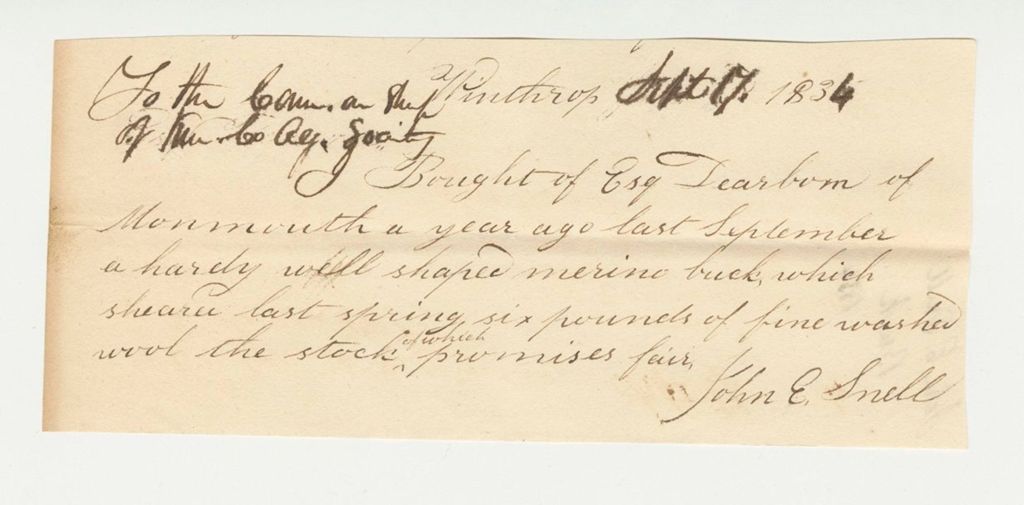 To the Com. on Shp Winthrop Sept 17. 1834
of Ken. Co Ag. Society
Bought of Esq Dearborn of
Monmouth a year ago last September
a hardy well shaped merino buck, which
sheared last spring six pounds of fine washed
wool the stock of which promises fair,
John E. Snell